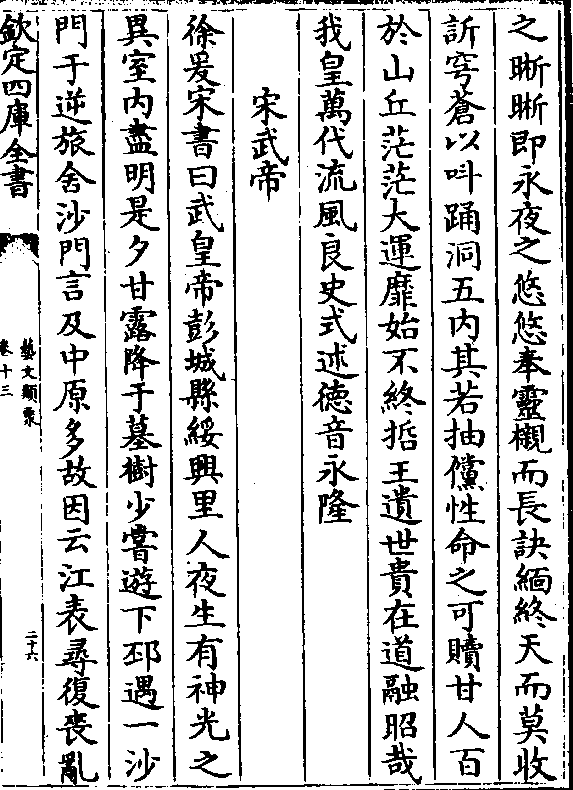 之晣晣即永夜之悠悠奉靈櫬而長訣緬終天而莫收
訴穹蒼以叫踊洞五内其若抽儻性命之可贖甘人百
於山丘茫茫大運靡始不終哲王遺世貴在道融昭哉
我皇萬代流風良史式述德音永隆
宋武帝
徐爰宋書曰武皇帝彭城縣綏興里人夜生有神光之
異室内盡明是夕甘露降于墓樹少嘗遊下邳遇一沙
門于逆旅舍沙門言及中原多故因云江表尋復喪亂
欽定四庫全書
藝文類聚
卷十三
二十六